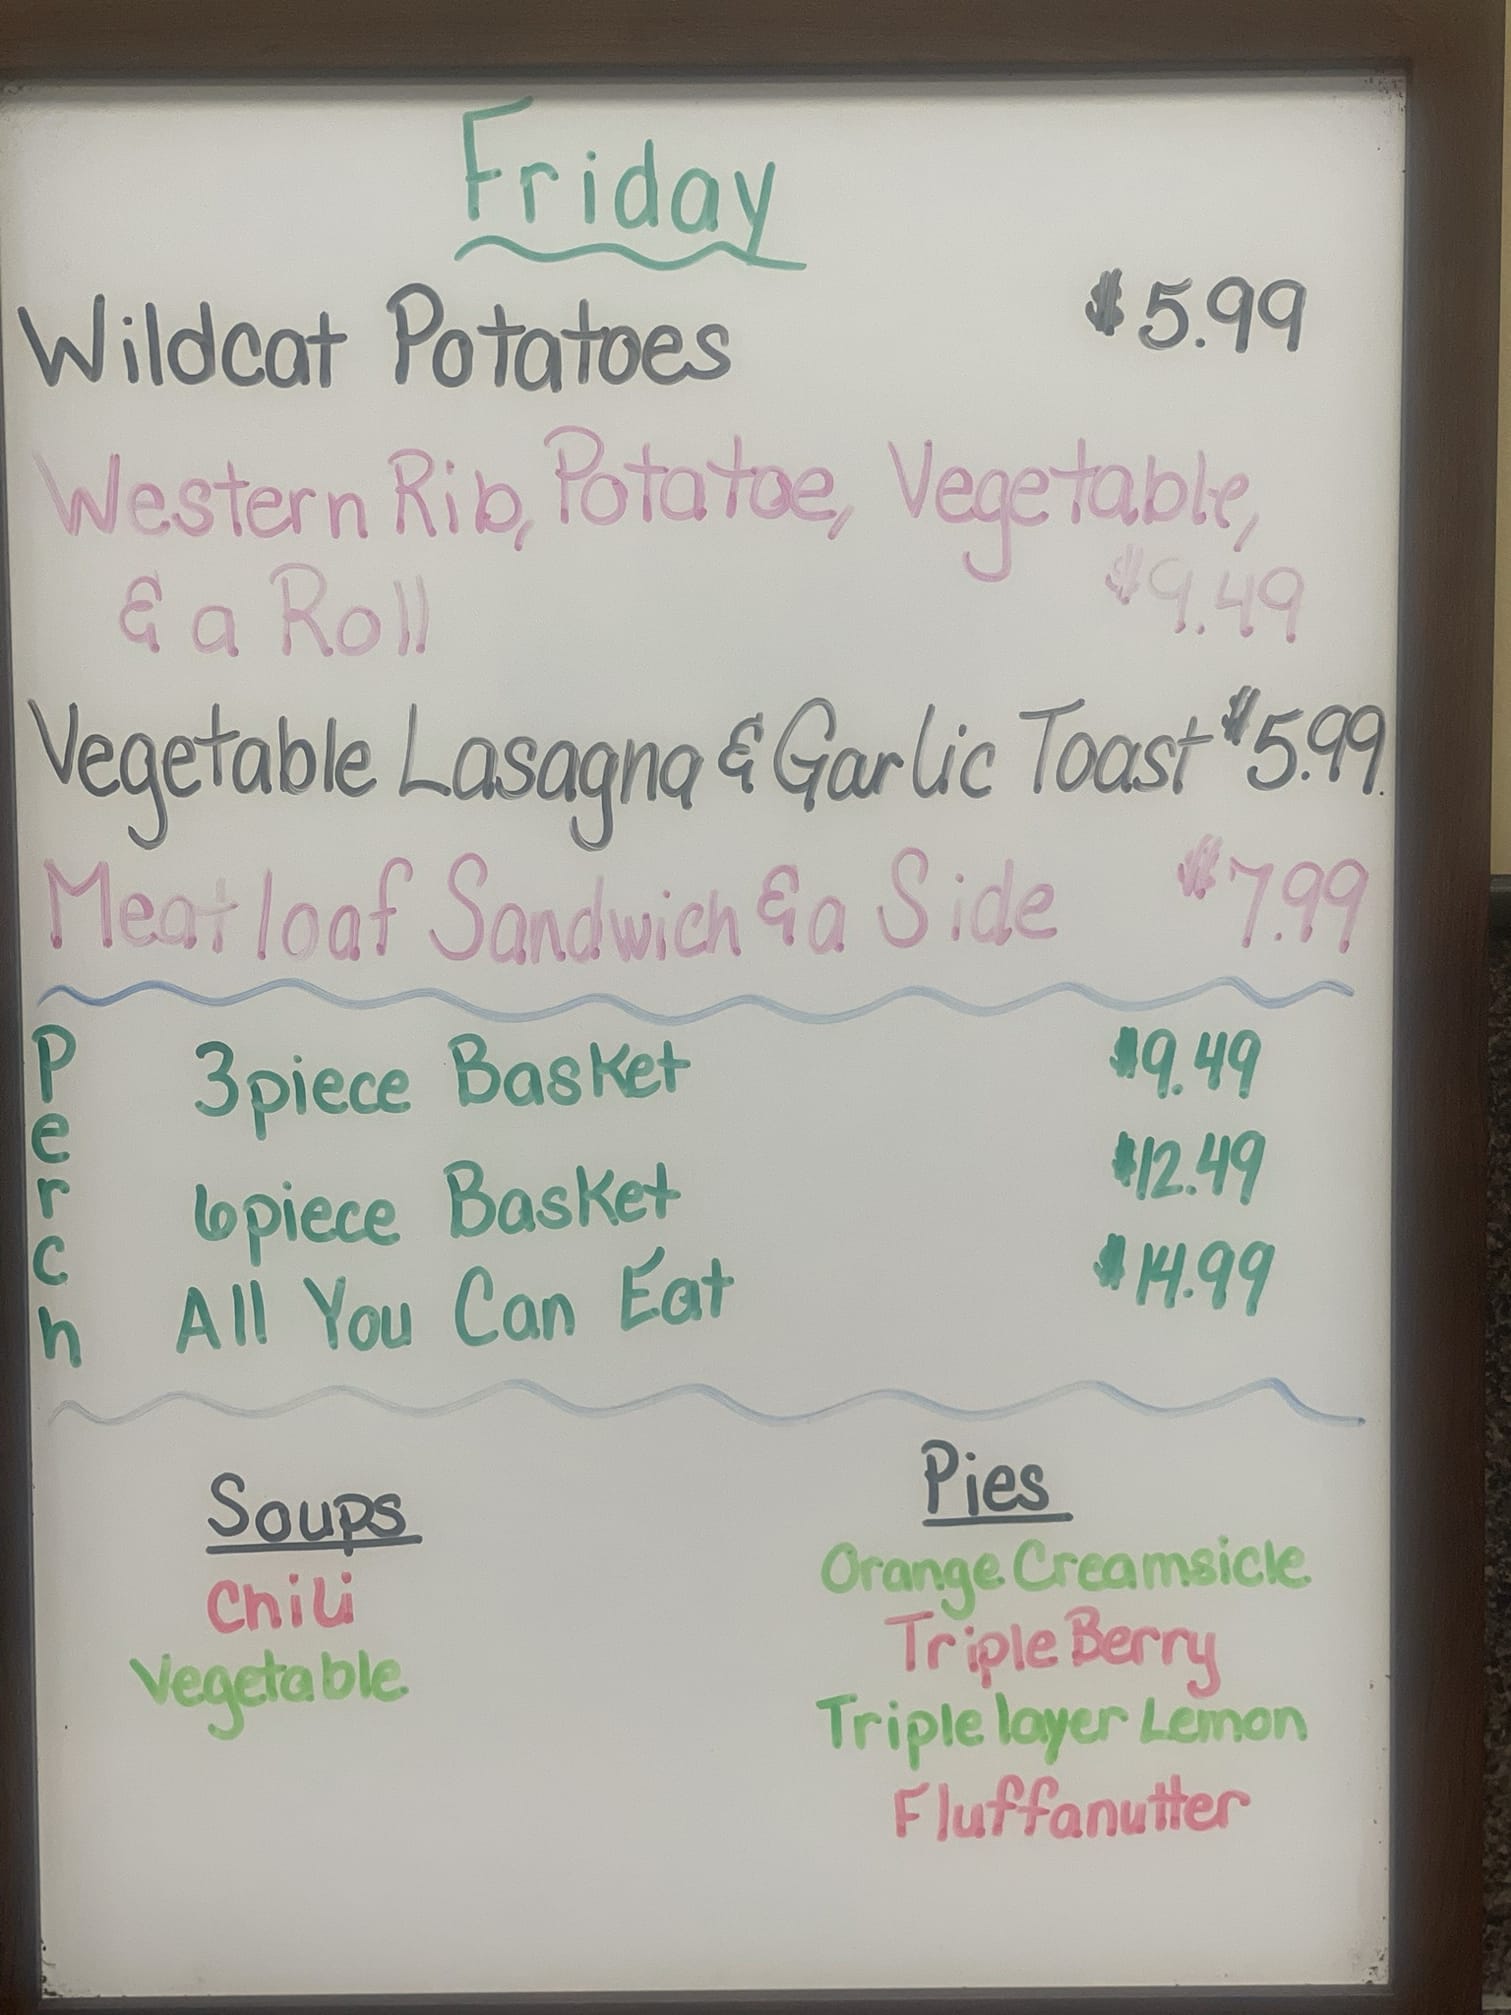 Friday
Wildcat Potatoes $5.99
Western Rib, Potatoe, Vegetable,
& a Roll $9.49
Vegetable Lasagna & Garlic Toast $5.99
Meatloaf Sandwich & a Side $7.99
Perch
3 piece Basket $9.49
6 piece Basket $12.49
All You Can Eat $14.99
Soups
Chili
Vegetable
Pies
Orange Creamsicle
Triple Berry
Triple layer Lemon
Fluffanutter